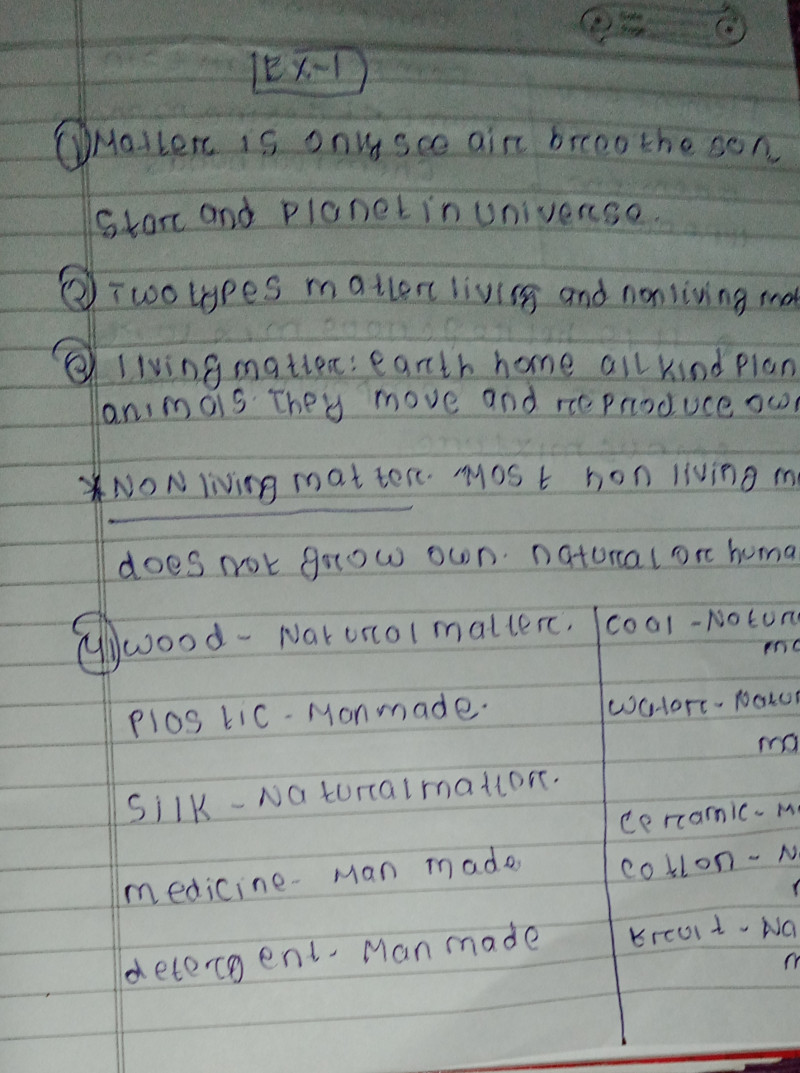 EX-1
① Matter is only see air breathe son
Star and Planet in universe.
② Two types matter living and nonliving mat
③ living matter: earth home all kind Plan
animals. They move and reproduce own
* NON living matter. Most non living m
does not grow own. natural or huma
④ wood - Natural matter.
cool - Nature
Plastic - Manmade.
water - Natur
ma
Silk - Natural matter.
ceramic - M
medicine - Man made
cotton - N
detergent - Man made
Fruit - Na
m